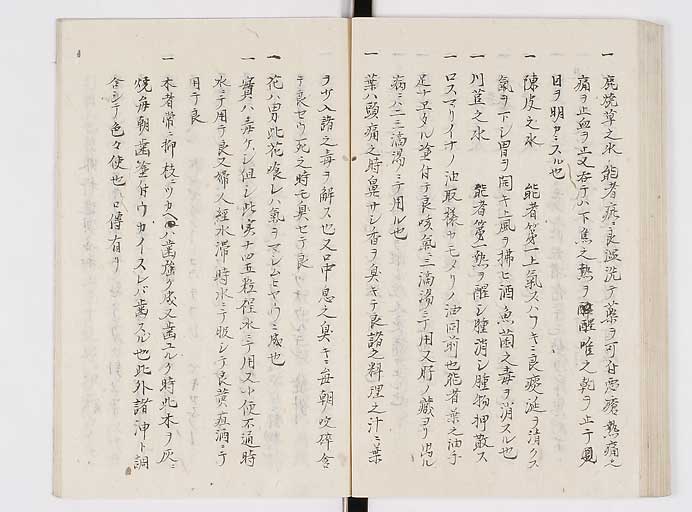 一 鹿焼草之水 能者疵ニ良温洗テ薬ヲ可付悪瘡熱痛之
痛ヲ止血ヲ止又呑テハ下焦之熱ヲ醒唯之乾ヲ止テ
目ヲ明カニスル也
一 陳皮之水 能者第一上氣スハフキニ良痰之涎ヲ清クス
氣ヲ下シ胃ヲ開キ上風ヲ拂ヒ酒魚菌之毒ヲ消スル也
一 川芎之水 能者第一熱ヲ醒シ腫消シ腫物押散ス
一 ロスマリイナノ油取様カモメリノ油同前也能者葉之油手
足ナヱタル塗付テ良咳氣三滴湯ニテ用又肝ノ蔵ヨリ出ル
病ニハ二三滴湯ニテ用ル也
一 葉ハ頭痛之時鼻サシ香ヲ臭キテ良諸之料理之汁ニ葉
ヲ入諸之毒ヲ解ス也又口中息之臭キニ毎朝咬碎含
テ良セリ死之時モ臭セテ良
一 花ハ男此花喰レハ氣ヲマシム
一 實ハ毒ケシ但シ此実十四五粒程水ニテ用又小便不通時
水ニテ用テ良又婦人経水滞時水ニテ服シテ良黄疸酒ニテ
用テ良
一 木者常ニ抑枝ニツカヘハ歯強ク成又歯ユルク時此木ヲ灰ニ
焼毎朝歯塗付ウカイースレハ歯スル也此外諸沖ト調
合シテ色々使也口傳有リ